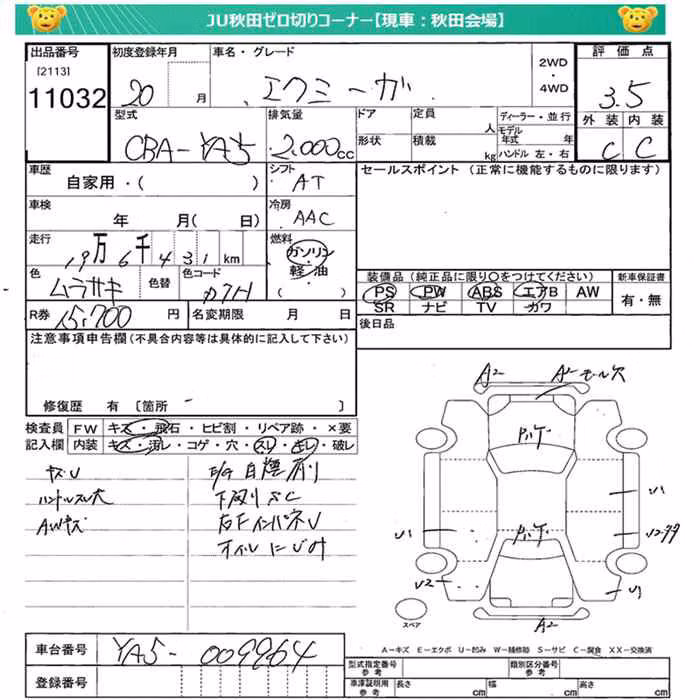 JU秋田ゼロ切りコーナー【現車：秋田会場】
出品番号 [2113] 11032
初度登録年月 20 月
車名・グレード エクシーガ
2WD・4WD
評価点 3.5
外装 C 内装 C
型式 CBA-YA5
排気量 2,000cc
ドア 形状
定員 人 積載 kg
ディーラー・並行
モデル年式 年
ハンドル 左・右
車歴 自家用・( )
シフト AT
セールスポイント (正常に機能するものに限ります)
車検 年 月( 日)
冷房 AAC
走行 19万6千431km
燃料 ガソリン・軽油 ( )
色 ムラサキ 色替 色コード
装備品 (純正品に限り○をつけてください)
PS PW ABS エアB AW
SR ナビ TV カワ
新車保証書 有・無
R券 15,700円 名変期限 月 日
後日品
注意事項申告欄 (不具合内容等は具体的に記入して下さい)
修復歴 有 [箇所 ]
検査員記入欄
FW キズ・飛石・ヒビ割・リペア跡・×要
内装 キズ・汚レ・コゲ・穴・スレ・キレ・破レ
キズU
ハンドルスレ大
AWキズ
E/G白煙有り
下廻りSC
右FインパネU
オイルにじみ
A2 A2 モール欠
パッケ
U1
パッケ
U1 U2
U2 U1
A2
スペア
A－キズ E－エクボ U－凹み W－補修跡 S－サビ C－腐食 XX－交換済
車台番号 YA5-009964
登録番号
型式指定番号 参考
類別区分番号 参考
車庫証明用 参考 長さ cm 幅 cm 高さ cm